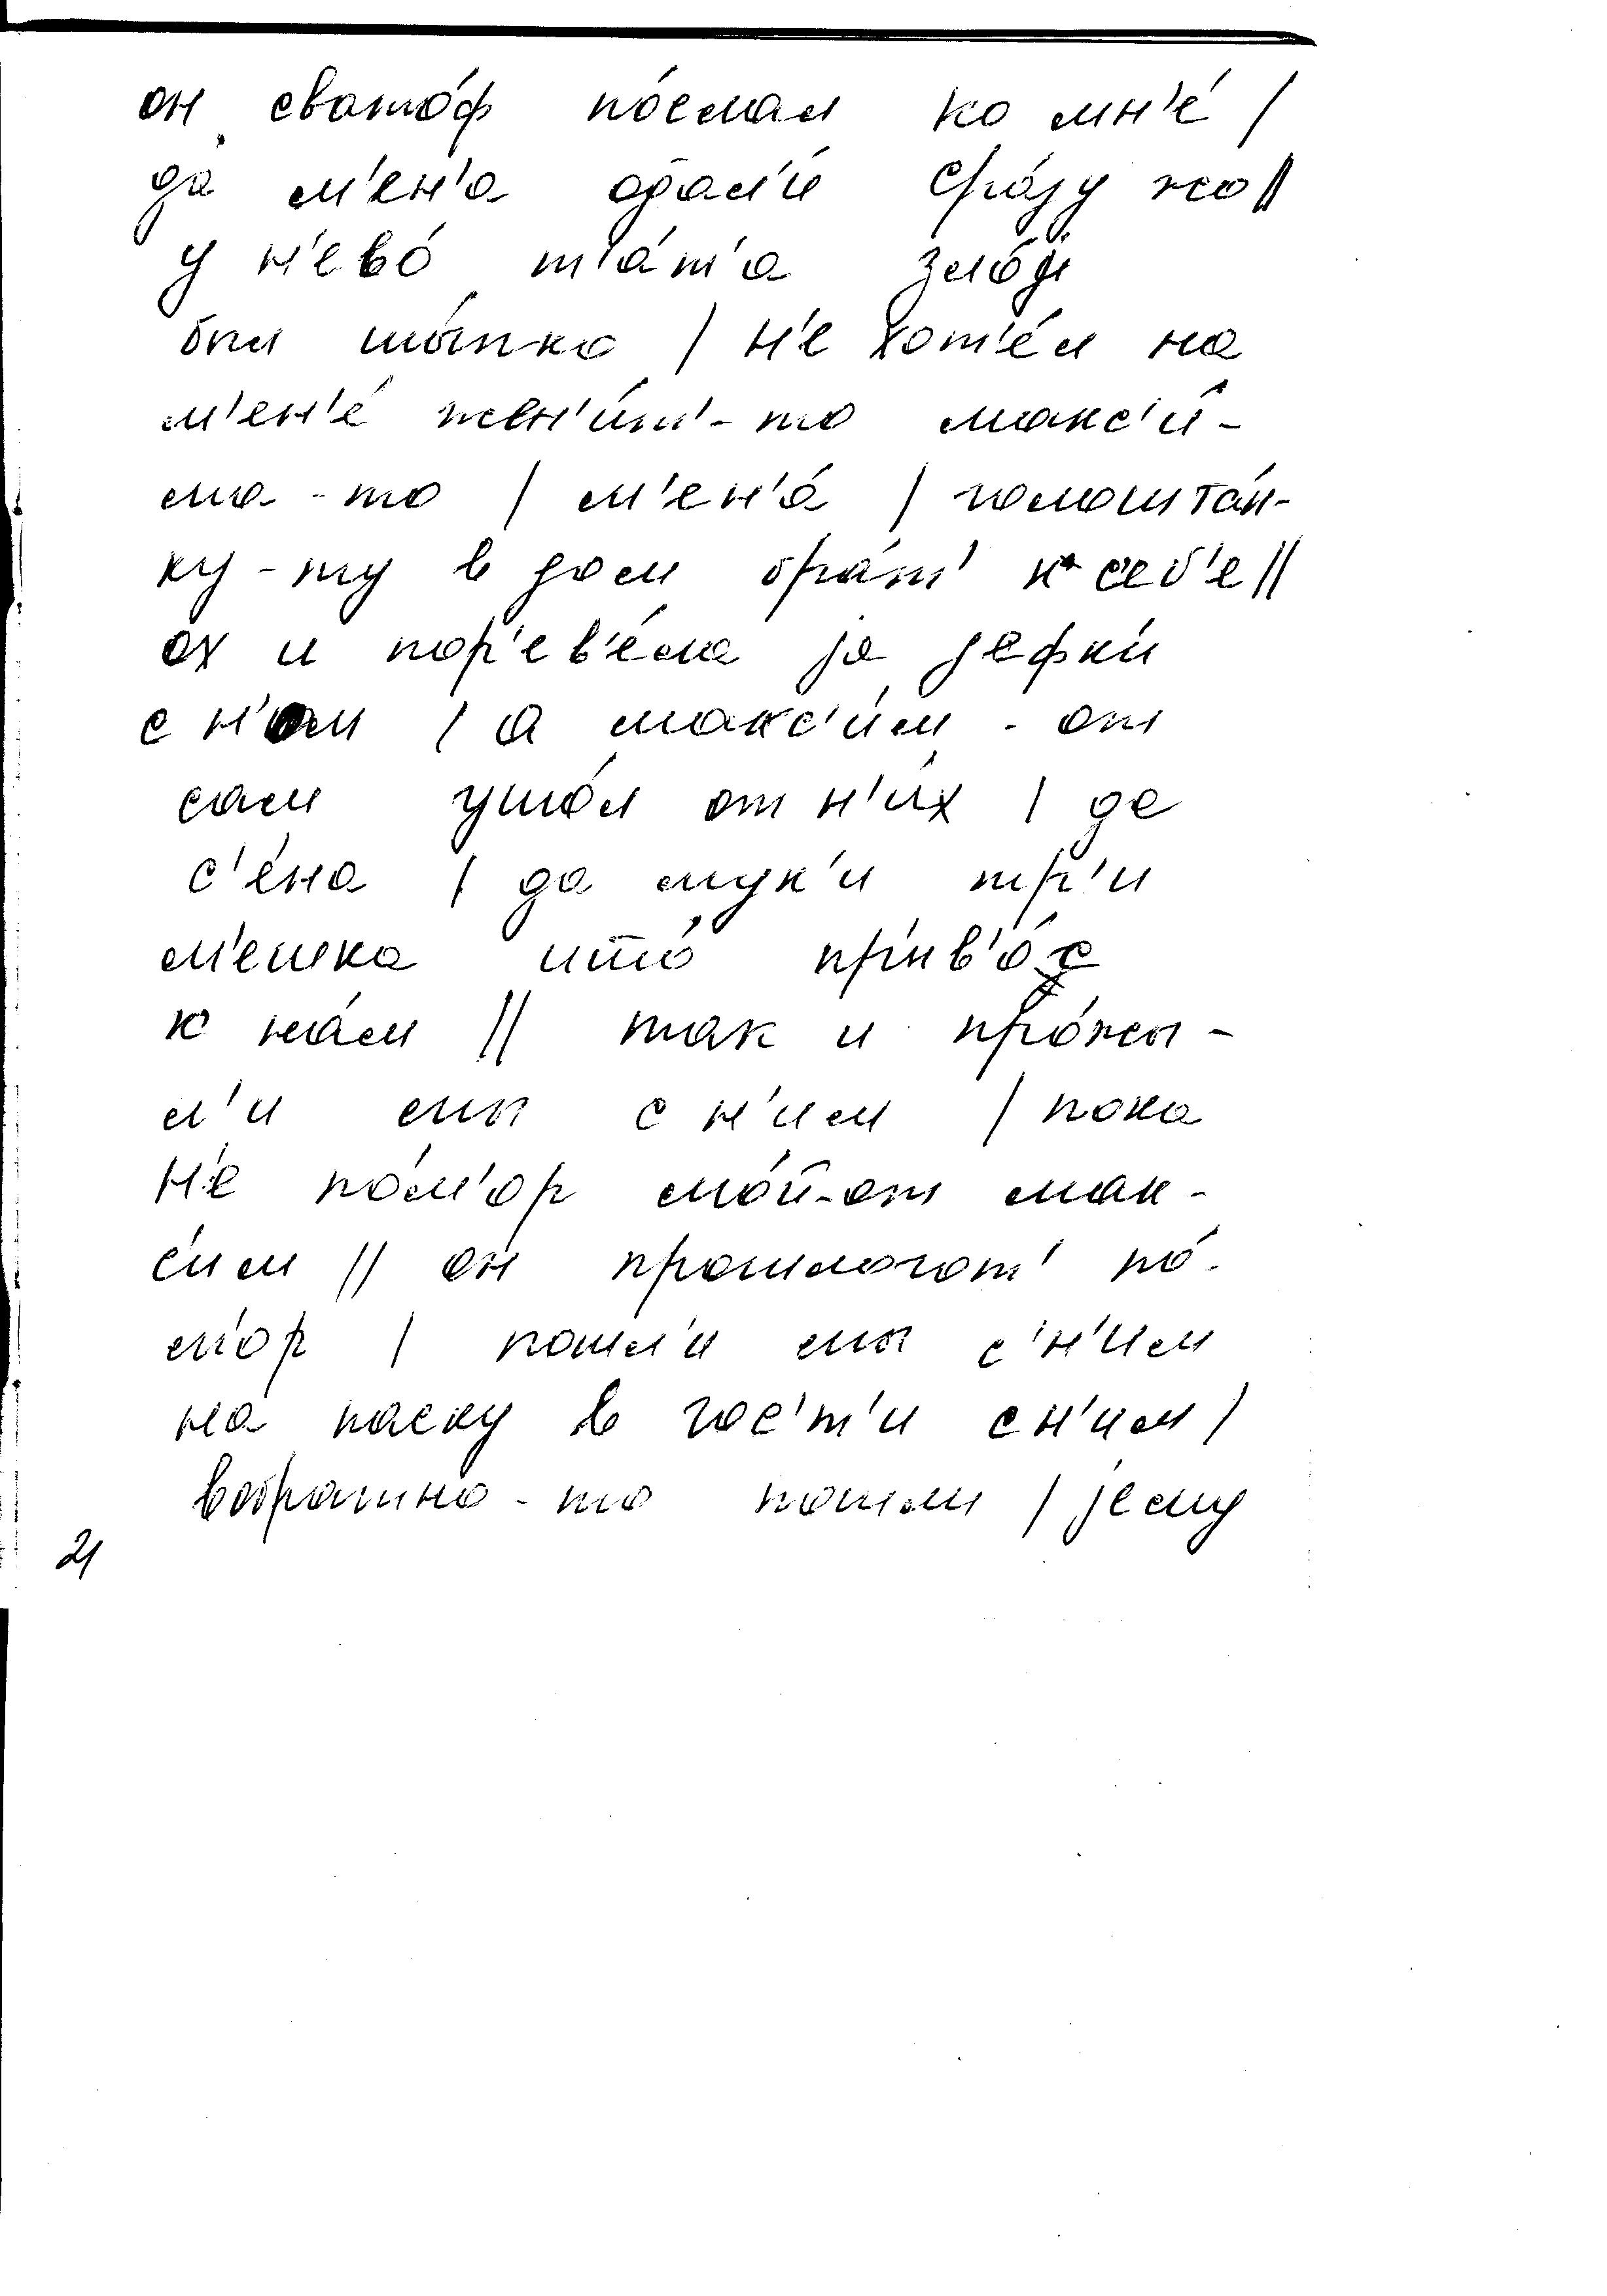 он сватóф пóслал ко мн'é /
да м'ен'а одал'и́ срáзу жо //
у н'евó т'áт'а злóј
был шы́пко / н'е хот'éл на
м'ен'é жен'и́т'-то макс'и́-
ма-то / м'ен'á / голоштáн-
ку-ту в дом брáт' к себ'е //
ох и пор'ев'éла за дефки
с н'ом / а макс'и́м-от
сам ушóл от н'и́х / да
с'éна / да мук'и тр'и
м'ешка што прив'óс
к нáм // так и прóжы-
л'и мы с н'им / пока
н'е пóм'ор мóй-от мак-
сим // он прошлогот' пó-
м'ор / пошл'и мы с'н'им
на паску в гос'т'и с н'им /
вобратно-то пошли / јему
21